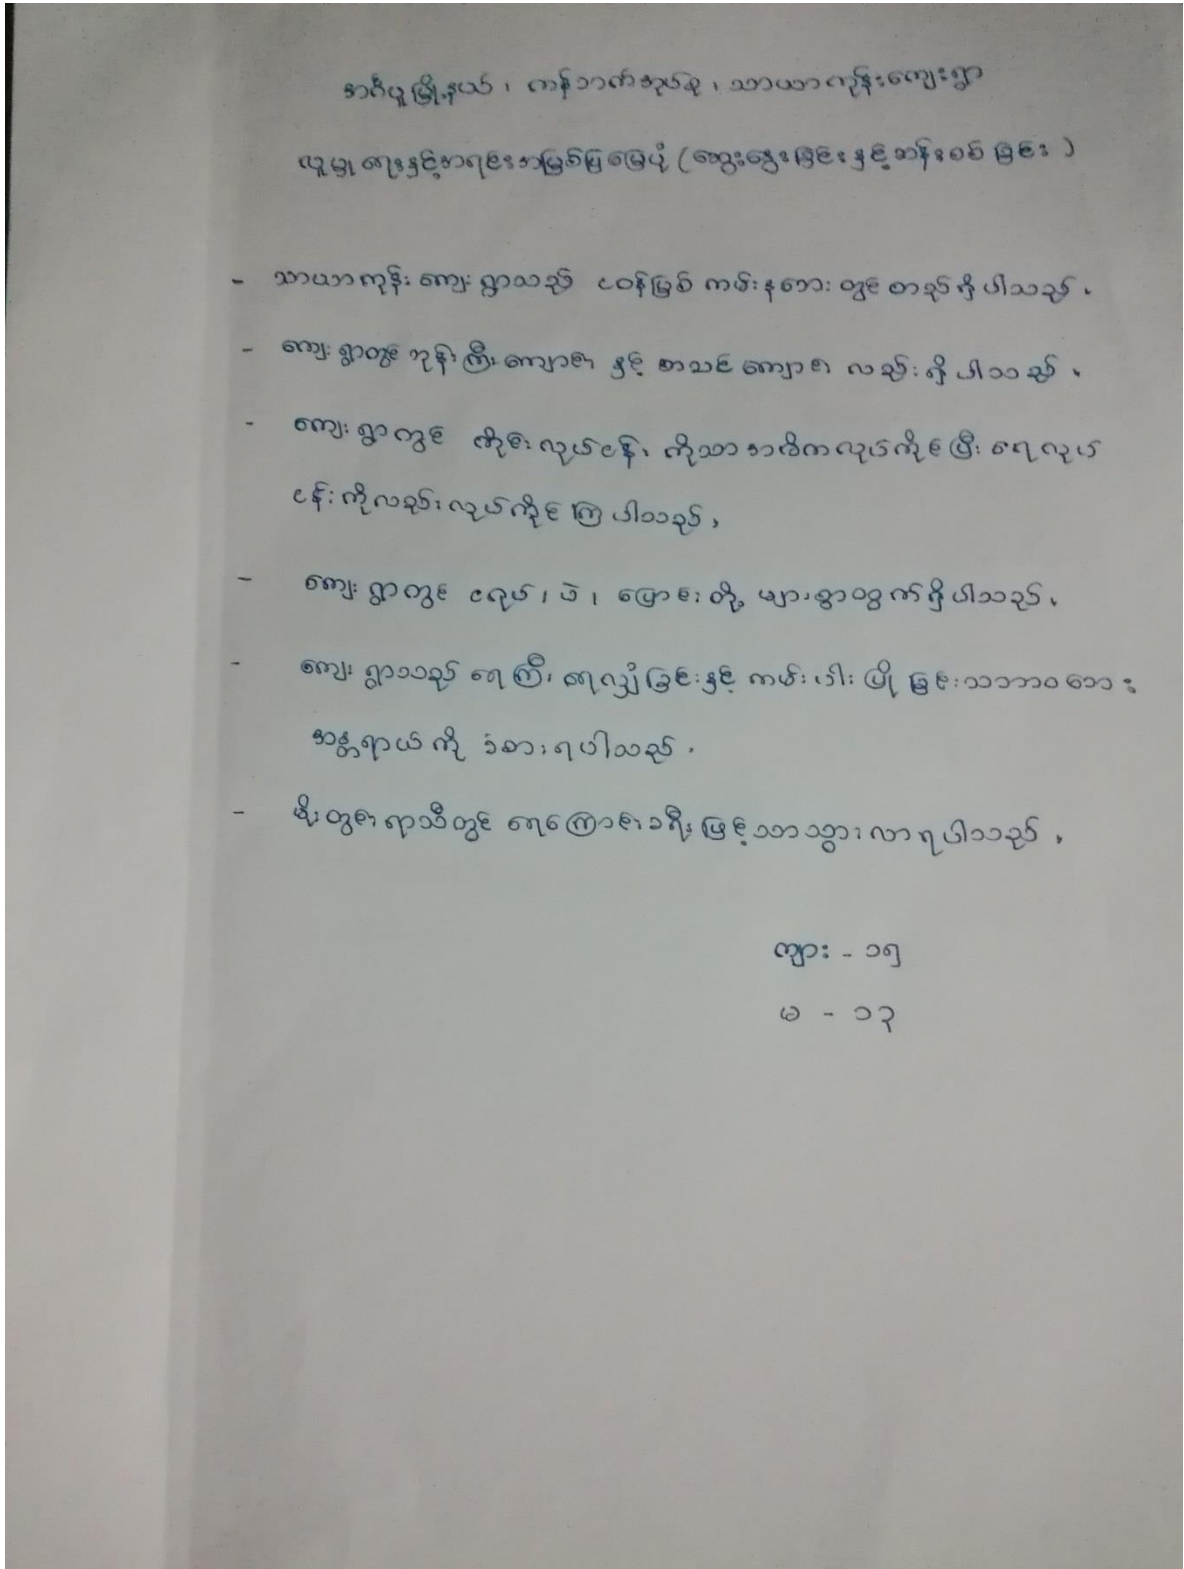 အင်္ဂပူမြို့နယ်၊ ကန်ဘက်အုပ်စု၊ သာယာကုန်းကျေးရွာ
လူမှုရေးနှင့်အရင်းအမြစ်ပြမြေပုံ (ဆွေးနွေးခြင်းနှင့်ဆန်းစစ်ခြင်း)
- သာယာကုန်းကျေးရွာသည် ငဝန်မြစ်ကမ်းနဘေးတွင်တည်ရှိပါသည်။
- ကျေးရွာတွင် ဘုန်းကြီးကျောင်း နှင့် စာသင်ကျောင်း လည်းရှိပါသည်။
- ကျေးရွာတွင် ကိုင်းလုပ်ငန်းကိုသာ အဓိကလုပ်ကိုင်ပြီး ရေလုပ်
ငန်းကိုလည်းလုပ်ကိုင်ကြပါသည်။
- ကျေးရွာတွင် ငရုပ်၊ ပဲ၊ ပြောင်းတို့ များစွာထွက်ရှိပါသည်။
- ကျေးရွာသည် ရေကြီးရေလျှံခြင်းနှင့် ကမ်းပါးပြိုခြင်းသဘာဝဘေး
အန္တရာယ်ကို ခံစားရပါသည်။
- မိုးတွင်းရာသီတွင် ရေကြောင်းခရီးဖြင့်သာသွားလာရပါသည်။
ကျား - ၁၅
မ - ၁၃